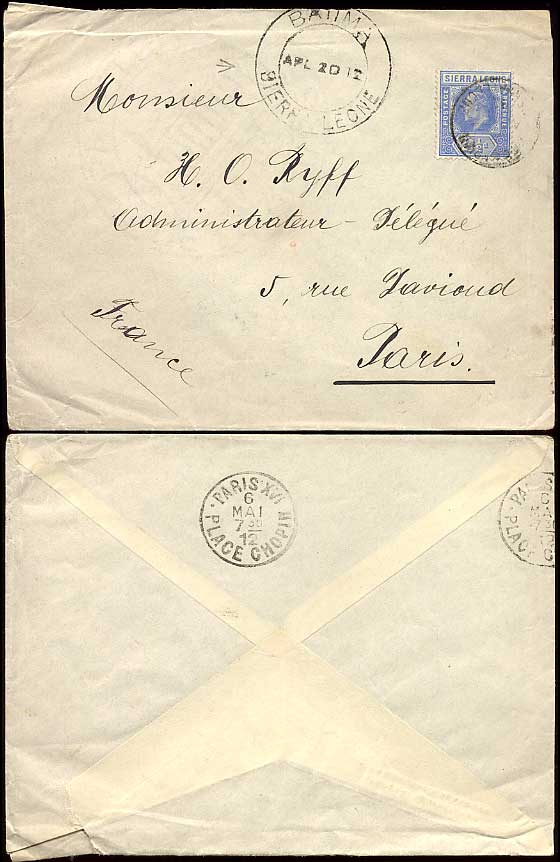 BAIIMA
APL 20 12
SIERRA LEONE
SIERRA LEONE
POSTAGE
Monsieur
H. O. Ryff
Administrateur - Délégué
5, rue Davioud
Paris.
France
PARIS XVI
6
MAI
7 30
12
PLACE CHOPIN